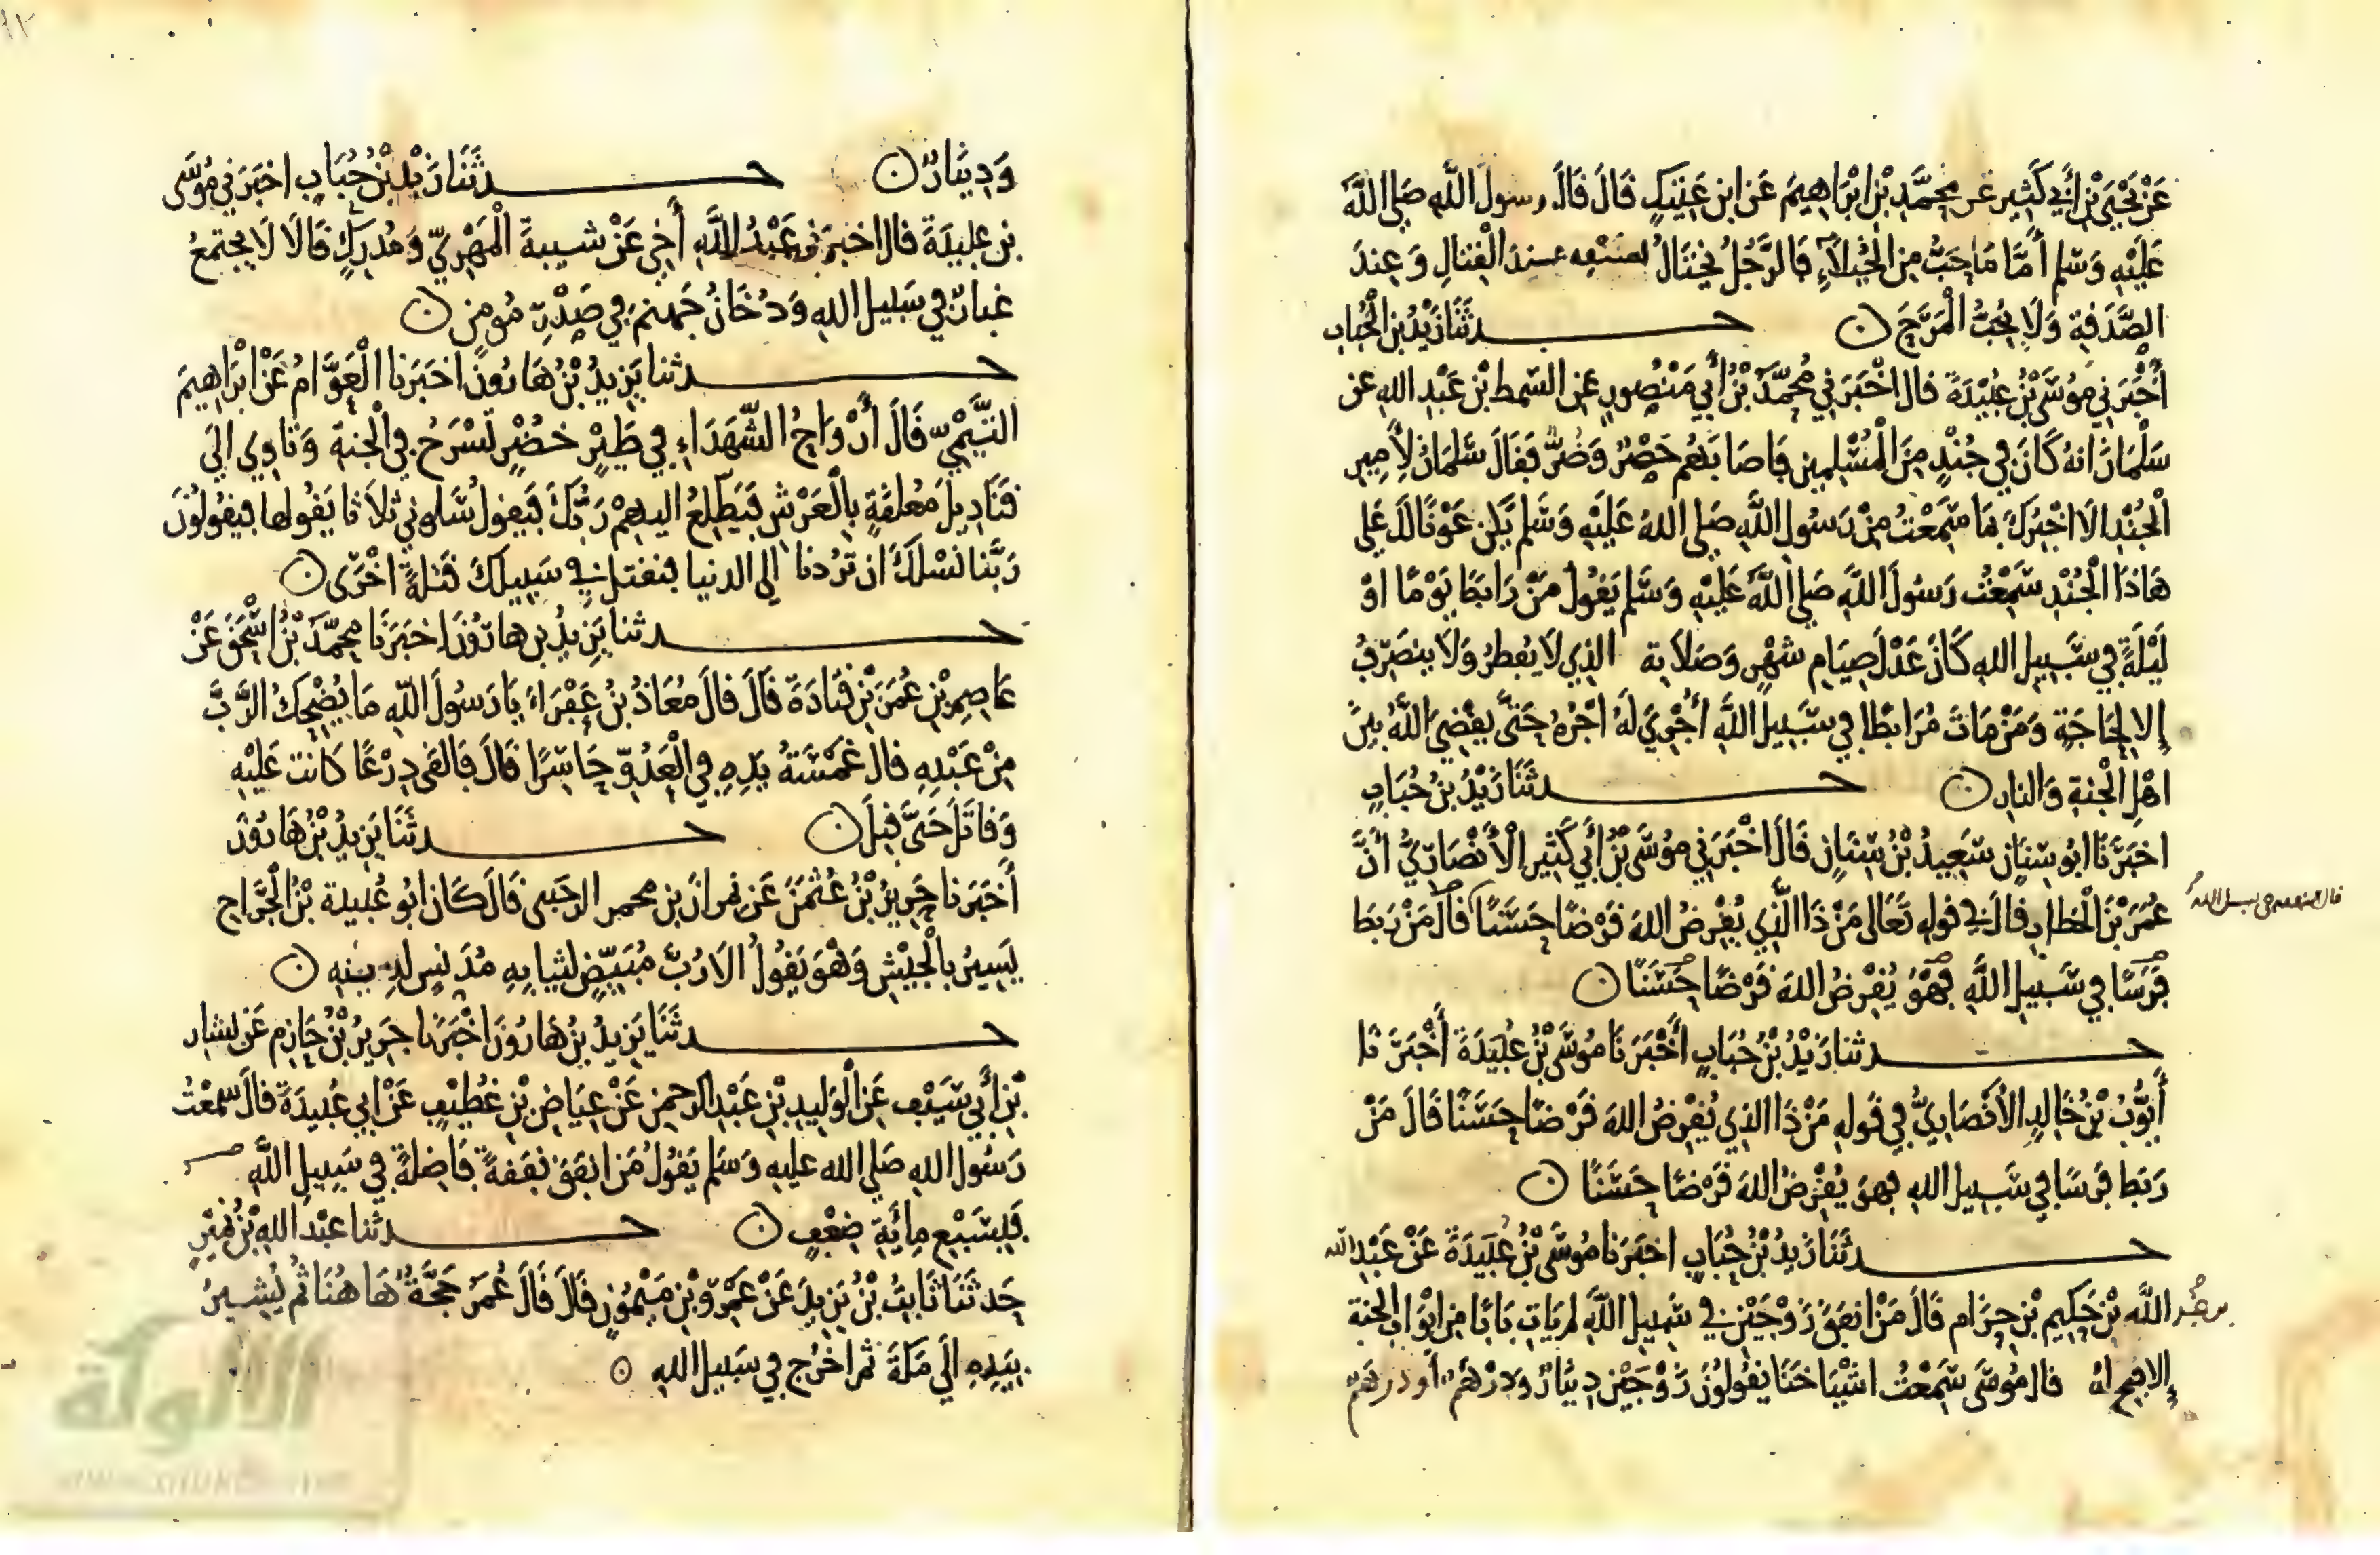 عَنْ يَحْيَى بْنِ أَبِي كَثِيرٍ عن مُحَمَّدِ بْنِ ابْرَاهِيمَ عَنِ ابنِ عَتِيكٍ قَالَ قَالَ رسولُ اللَّهِ صَلى اللَّهُ
عَلَيْهِ وَسَلم أَمَّا مَا يُحِبُّ مِنَ الْخُيَلَاءِ فَالرَّجُلُ يَخْتَالُ بنفسه عِندَ الْقِتَالِ وَعِندَ
الصَّدَقَةِ وَلَا يُحِبُّ الْمَرَحَ ن حـــدثَنَا زَيْدُ بْنُ الْحُبَابِ
أَخْبَرَنِي مُوسَى بْنُ عُبَيْدَةَ قال اخْبَرَنِي مُحَمَّدُ بْنُ أَبِي مَنْصُورٍ عَنِ السمط بْنِ عَبْدِ اللهِ عَن
سَلْمَانَ انهُ كَانَ فِي جُنْدٍ مِنَ الْمُسْلِمِينَ فَاصَابَهُم حَصْرٌ وَضُرٌّ فَقَالَ سَلمَانُ لِأَمِيرِ
الْجُنْدِ الَا اخْبِرُكَ بمَا سَمِعْتُ مِنْ رَسُولِ اللَّهِ صَلى اللهُ عَلَيْهِ وَسَلم يَكُن عَوْنًا لَكَ عَلى
هَاذَا الْجُنْدِ سَمِعْتُ رَسُولَ اللَّهِ صَلى اللَّهُ عَلَيْهِ وَسَلم يَقُولُ مَنْ رَابَطَ يَوْمًا اوْ
لَيْلَةً فِي سَبِيلِ اللهِ كَانَ عَدْلَ صِيَامِ شَهْرٍ وَصَلَاتِه الذِي لَا يُفطِرُ وَلَا ينصَرِفُ
إلا لِحَاجَةٍ وَمَنْ مَاتَ مُرَابطًا فِي سَبِيلِ اللَّهِ أُجْرِيَ لَهُ اجْرُهُ حَتَّى يَقْضِيَ اللَّهُ بَيْنَ
اهْلِ الْجَنةِ وَالنارِ ن حـــدثَنَا زَيْدُ بْنُ حُبَابٍ
اخبَرَنَا ابُو سِنَانٍ سَعِيدُ بْنُ سِنَانٍ قَالَ اخْبَرَنِي مُوسَى بْنُ أَبِي كَثِيرٍ الْأَنْصَارِيُّ أَنَّ
عُمَرَ بْنَ الْخَطابِ قالَ فِي قَولِهِ تَعَالى مَنْ ذَا الَّذِي يُقْرِضُ اللهَ قَرْضًا حَسَنًا قالَ مَنْ رَبَطَ
قال النفقه في سبيل الله
فَرَسًا فِي سَبِيلِ اللَّهِ فَهُوَ يُقْرِضُ اللهَ قَرْضًا حَسَنًا ن
حـــدثنا زَيْدُ بْنُ حُبَابٍ أَخْبَرَنَا مُوسَى بْنُ عُبَيْدَةَ أَخْبَرَنَا
أَيُّوبُ بْنُ خَالِدٍ الأنْصَارِيُّ فِي قَولِهِ مَنْ ذَا الذِي يُقْرِضُ اللهَ قَرْضًا حَسَنًا قَالَ مَنْ
رَبَطَ فَرَسًا فِي سَبِيلِ اللهِ فهوَ يُقْرِضُ اللهَ قَرْضًا حَسَنًا ن
حـــدثَنَا زَيدُ بْنُ حُبَابٍ اخبَرَنا مُوسَى بْنُ عُبَيْدَةَ عَنْ عَبْدِ الله
اللَّهِ بْنِ حَكِيمِ بْنِ حِزَام قَالَ مَنْ انفَقَ زَوْجَيْنِ فِي سَبِيلِ اللَّهِ لم يَاتِ بَابًا مِن ابْوَابِ الجنة
إلا فتح لهُ قال مُوسَى سَمِعْتُ اشْيَاخَنَا يَقُولُونَ زَوْجَيْنِ دِينَارٌ وَدرْهَم أو درهَم
وَدِينَارٌ ن حـــدثَنَا زَيْدُ بْنُ حُبَابٍ اخبَرَنِي مُوسَى
بن عبيدَةَ قال اخبرَنِي عَبْدُ اللَّهِ أَخِي عَنْ شيبةَ الْمَهْرِيِّ وَمُدرِكٍ قَالَا لَا يَجتمعُ
غبارٌ فِي سَبيلِ اللهِ وَدُخَانُ جَهنم فِي صَدْرِ مُومنٍ ن
حـــدثنا يَزِيدُ بْنُ هَارُونَ اخبَرَنا الْعَوَّامُ عَنْ ابْرَاهِيمَ
التَّيْمِيِّ قَالَ أَرْوَاحُ الشُّهَدَاءِ فِي طَيْرٍ خُضْرٍ تَسْرَحُ فِي الْجَنةِ وَتَاوِي الَى
قَنَادِيلَ مُعَلقَةٍ بِالْعَرْشِ فَيَطَّلِعُ اليهِمْ رَبُّكَ فَيَقولُ سَلونِي ثَلَاثا يَقُولها فيَقُولُونَ
رَبَّنا نَسْلكَ ان تَرُدنا إلى الدنيا فنقتل فِي سَبِيلكَ قَتلةً اخْرَى ن
حـــدثنا يَزِيدُ بن هارُونَ اخبَرَنَا مُحمَّدُ بْنُ اسْحَقَ عَنْ
عَاصِمِ بْنِ عُمَرَ بْنِ قَتَادَةَ قَالَ قالَ مُعَاذُ بْنُ عَفْرَاءَ يَا رَسُولَ اللهِ مَا يُضْحِكُ الرَّبَّ
مِنْ عَبْدِهِ قال غَمْسَتُهُ يَدِهِ فِي الْعَدُوِّ حَاسِرًا قَالَ فَالقى دِرْعًا كَانت عَلَيْهِ
وَقاتَلَ حَتَّى قُتِلَ ن حـــدثَنَا يَزِيدُ بْنُ هَارُونَ
أَخبَرَنا حَرِيزُ بْنُ عُثْمَنَ عَن نمرانَ بن مخمر الرحَبى قَالَ كَانَ ابُو عُبيدة بْنُ الْجَرَّاح
يَسِيرُ بالْجَيْشِ وَهْوَ يَقُولُ الَا رُبَّ مُبَيِّضٍ لثيابِهِ مُدَنسٍ لدِينه ن
حـــدثَنَا يَزِيدُ بْنُ هَارُونَ اخْبَرَنَا جَرِيرُ بْنُ حَازِم عَن بشار
بْنِ أَبِي سَيْفٍ عَنِ الْوَلِيدِ بْنِ عَبْدِ الرحمنِ عَنْ عِيَاضِ بْنِ غُطَيْفٍ عَنْ ابِي عُبيدَةَ قَالَ سَمِعْتُ
رَسُولَ اللهِ صَلى الله عَليهِ وَسَلم يَقُولُ مَن انفَقَ نَفَقةً فَاضِلَةً فِي سَبِيلِ اللَّهِ
فَبِسَبْعِ مِائَةِ ضِعْفٍ ن حـــدثنا عبْد اللهِ بْنُ نُمَيْرٍ
حَدثَنَا ثَابِتُ بْنُ يَزِيدَ عَنْ عَمْرِو بْنِ مَيْمُونٍ قَالَ قَالَ عُمَرُ حَجَّةٌ هَاهُنَا ثُم يُشِيرُ
بيَدِهِ الَى مَكةَ ثم اخرُج فِي سَبيلِ اللهِ ن
الألوكة